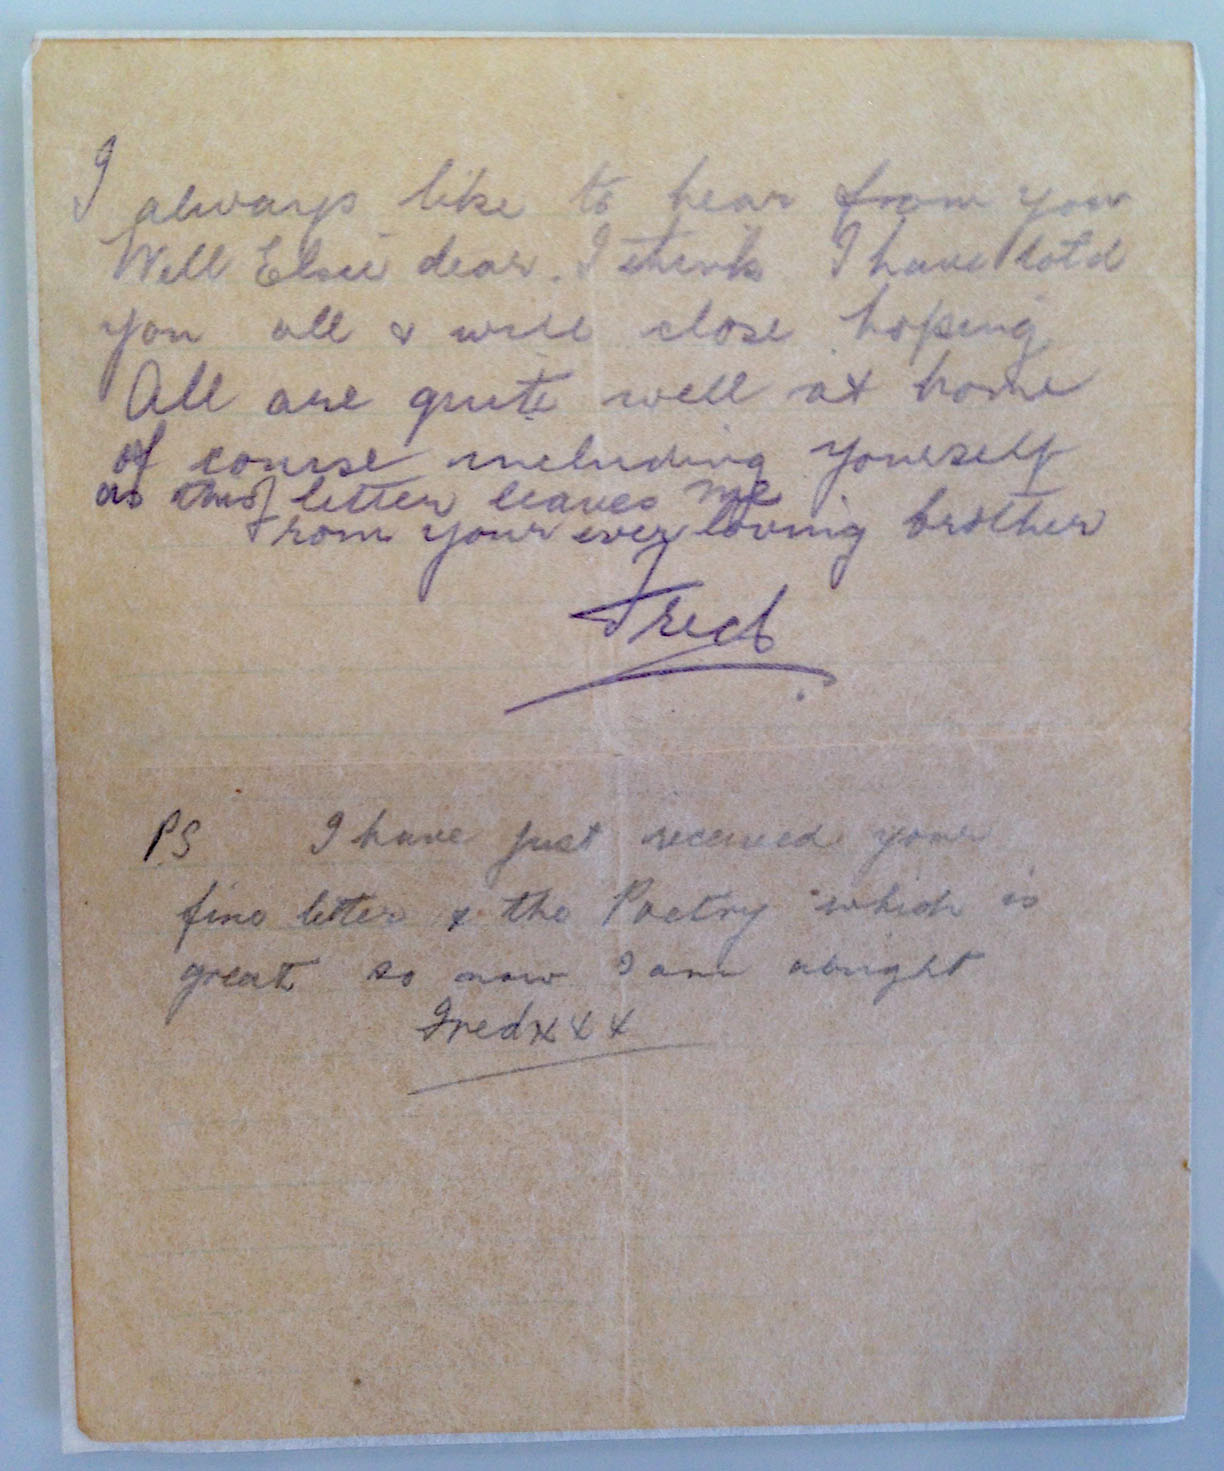 I always like to hear from you
Well Elsie dear. I think I have told
you all & will close hoping
All are quite well at home
of course including yourself
as this letter leaves me
From your ever loving brother
Fred
PS I have just received your
fine letter & the Poetry which is
great so now I am alright
Fred x x x